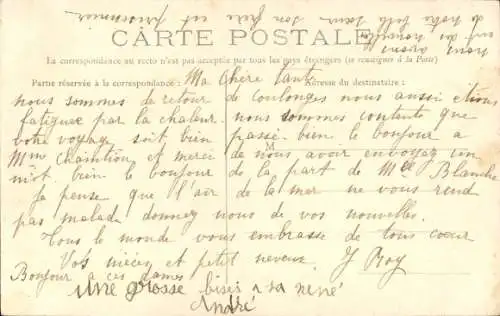 CARTE POSTALE
La correspondance au recto n'est pas acceptée par tous les pays étrangers (se renseigner à la Poste)
Partie réservée à la correspondance : Adresse du destinataire :
Ma chère tante
nous sommes de retour de coulonges nous aussi etions
fatiguez par la chaleur. nous sommes contents que
votre voyage soit bien passé bien le bonjour a
M
Mme et merci de nous avoir envoyez un
mot bien le bonjour de la part de Melle Blanche
Je pense que l'air de la mer ne vous rend
pas malade donnez nous de vos nouvelles.
Tous le monde vous embrasse de tous coeur
Vos nièces et petit neveux. J Roy
Bonjour a ces dames
une grosse bises a sa néné
André
nous avons
de notre
son frère est prisonnier